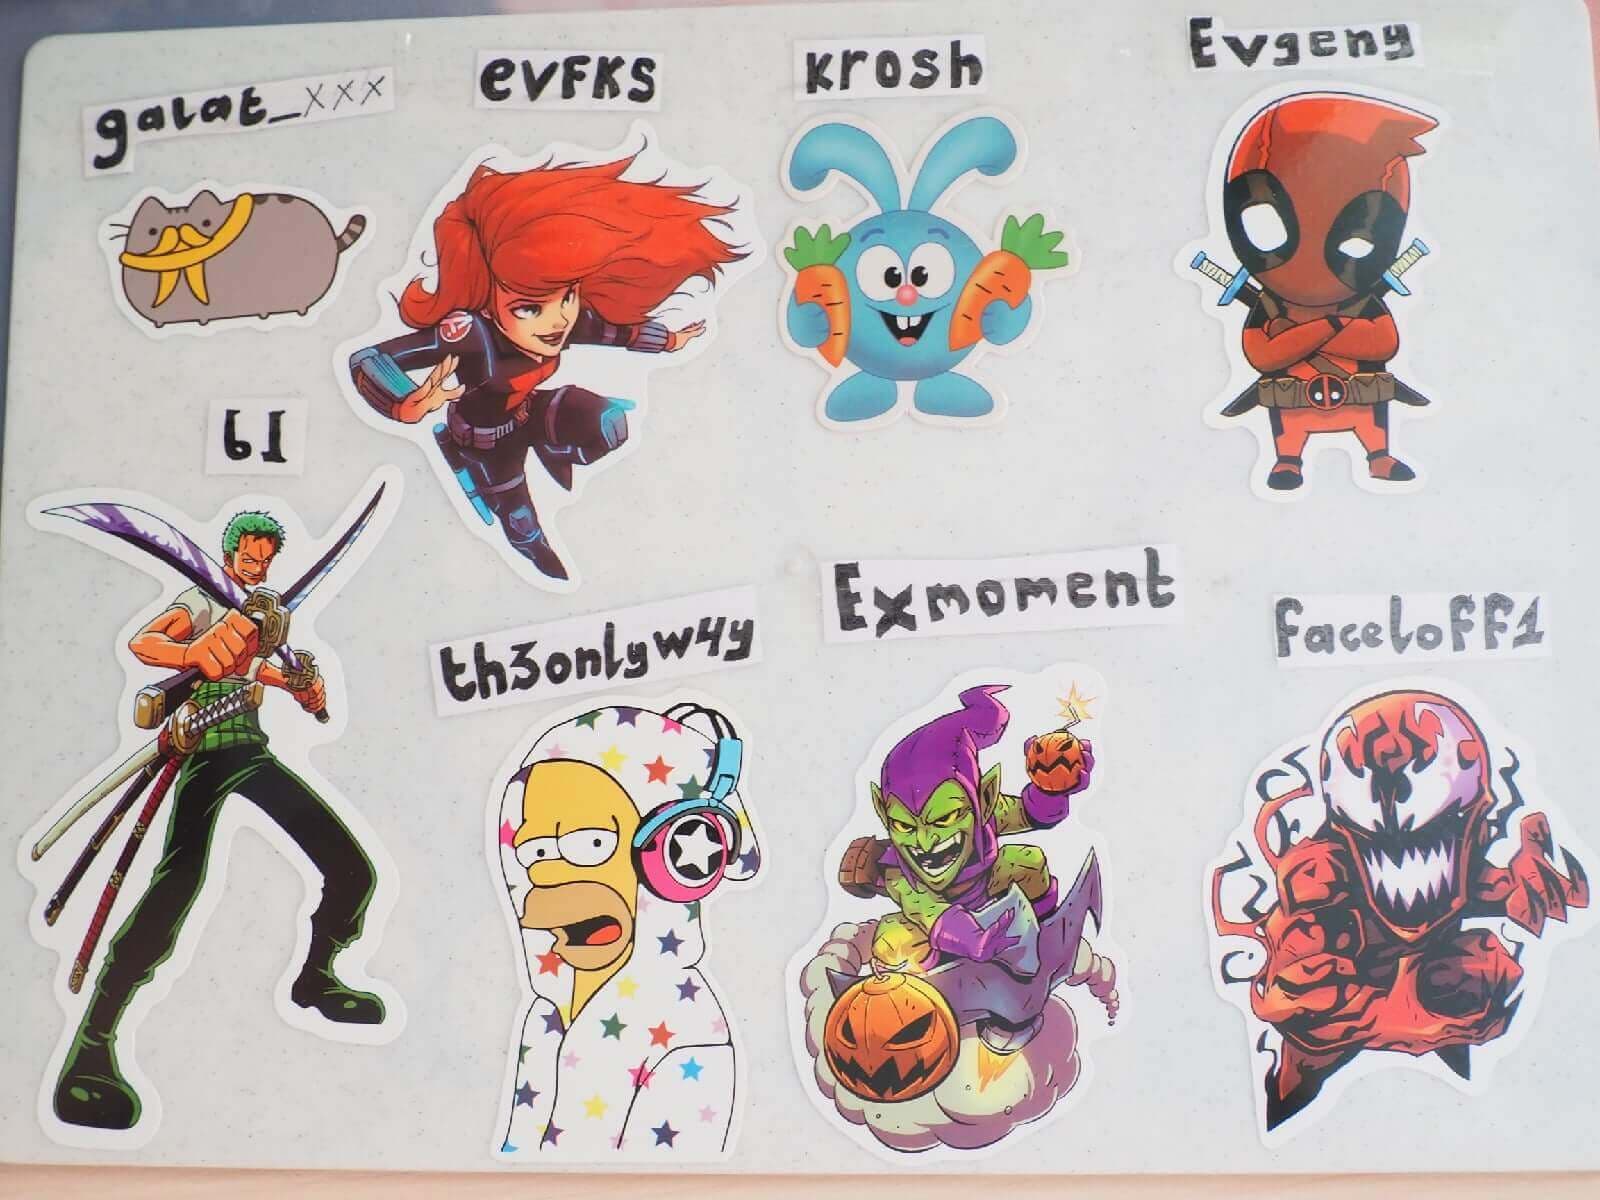 galat_xxx
evFKS
krosh
Evgeny
61
th3onlyw4y
Exmoment
faceloFF1